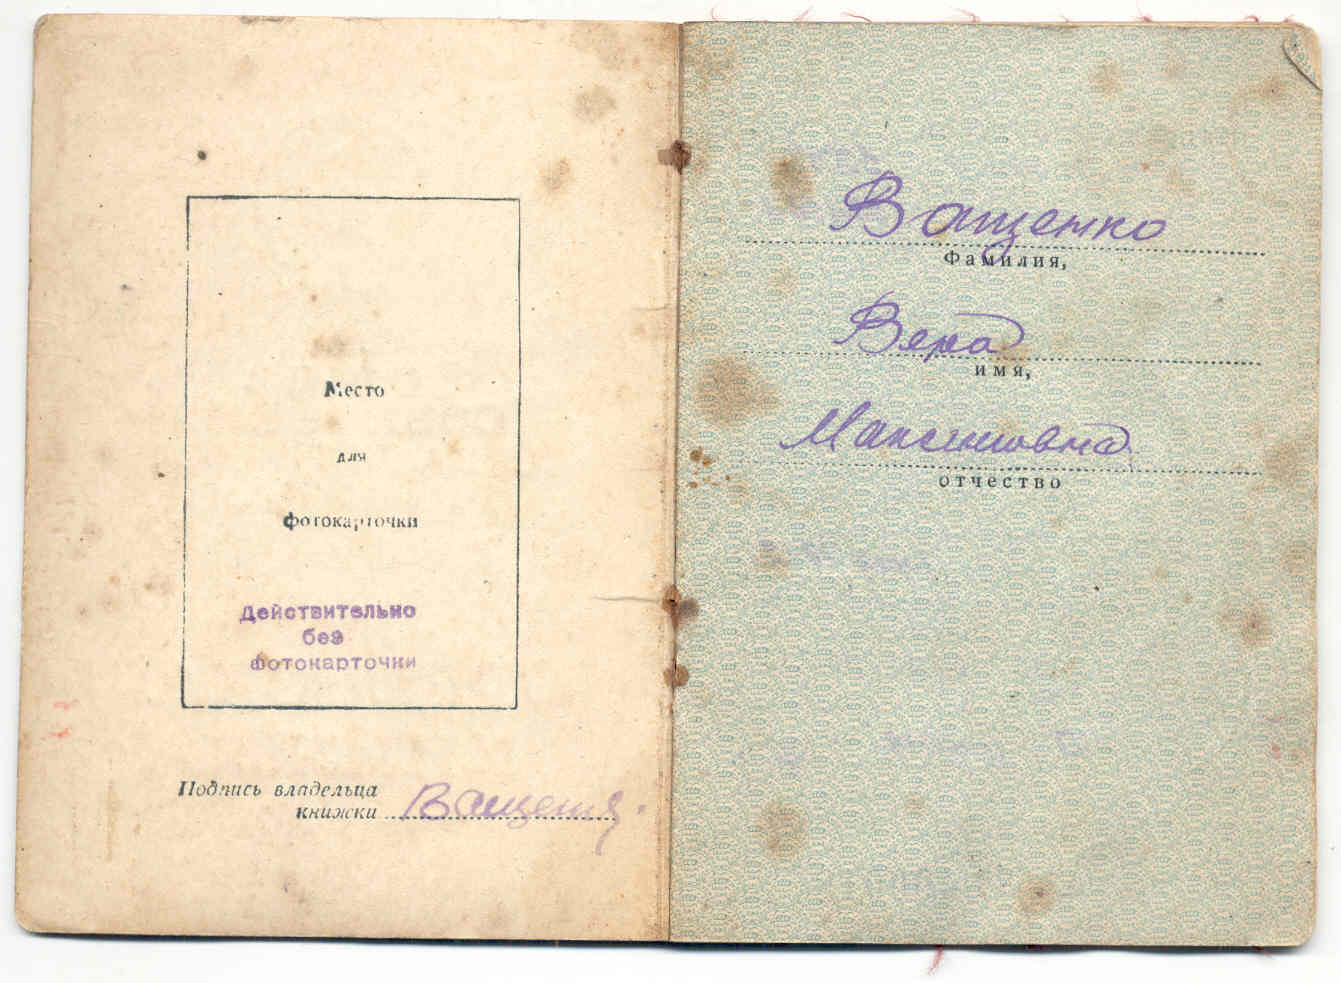 Место
для
фотокарточки
Действительно
без
фотокарточки
Подпись владельца
книжки
Ващенко
Фамилия,
Вера
имя,
Максимовна
отчество